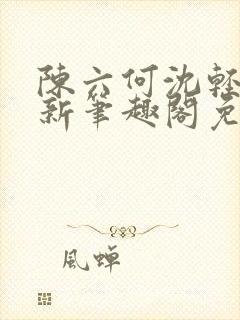 陳六何沈輕
新筆趣閣免
風蟬